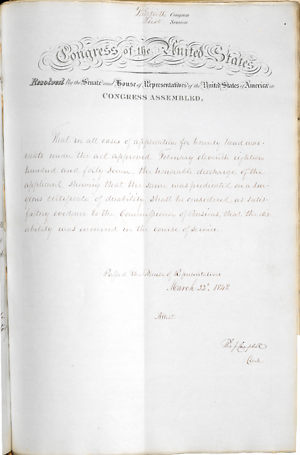 Thirtieth Congress
First Session
Congress of the United States
Resolved by the Senate and House of Representatives of the United States of America in
CONGRESS ASSEMBLED,
That in all cases of application for bounty land war-
rants under the act approved February eleventh eighteen
hundred and forty seven the honorable discharge of the
applicant showing that the same was predicated on a sur-
geons certificate of disability shall be considered as satis-
factory evidence to the Commissioner of Pensions, that the dis-
ability was incurred in the course of service.
Passed the House of Representatives
March 1848
Attest
Th. J. Campbell
Clerk